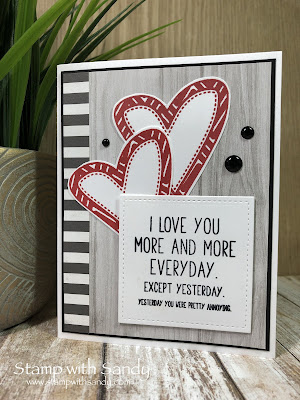 I LOVE YOU
MORE AND MORE
EVERYDAY.
EXCEPT YESTERDAY.
YESTERDAY YOU WERE PRETTY ANNOYING.
Stamp with Sandy
www.stampwithsandy.com